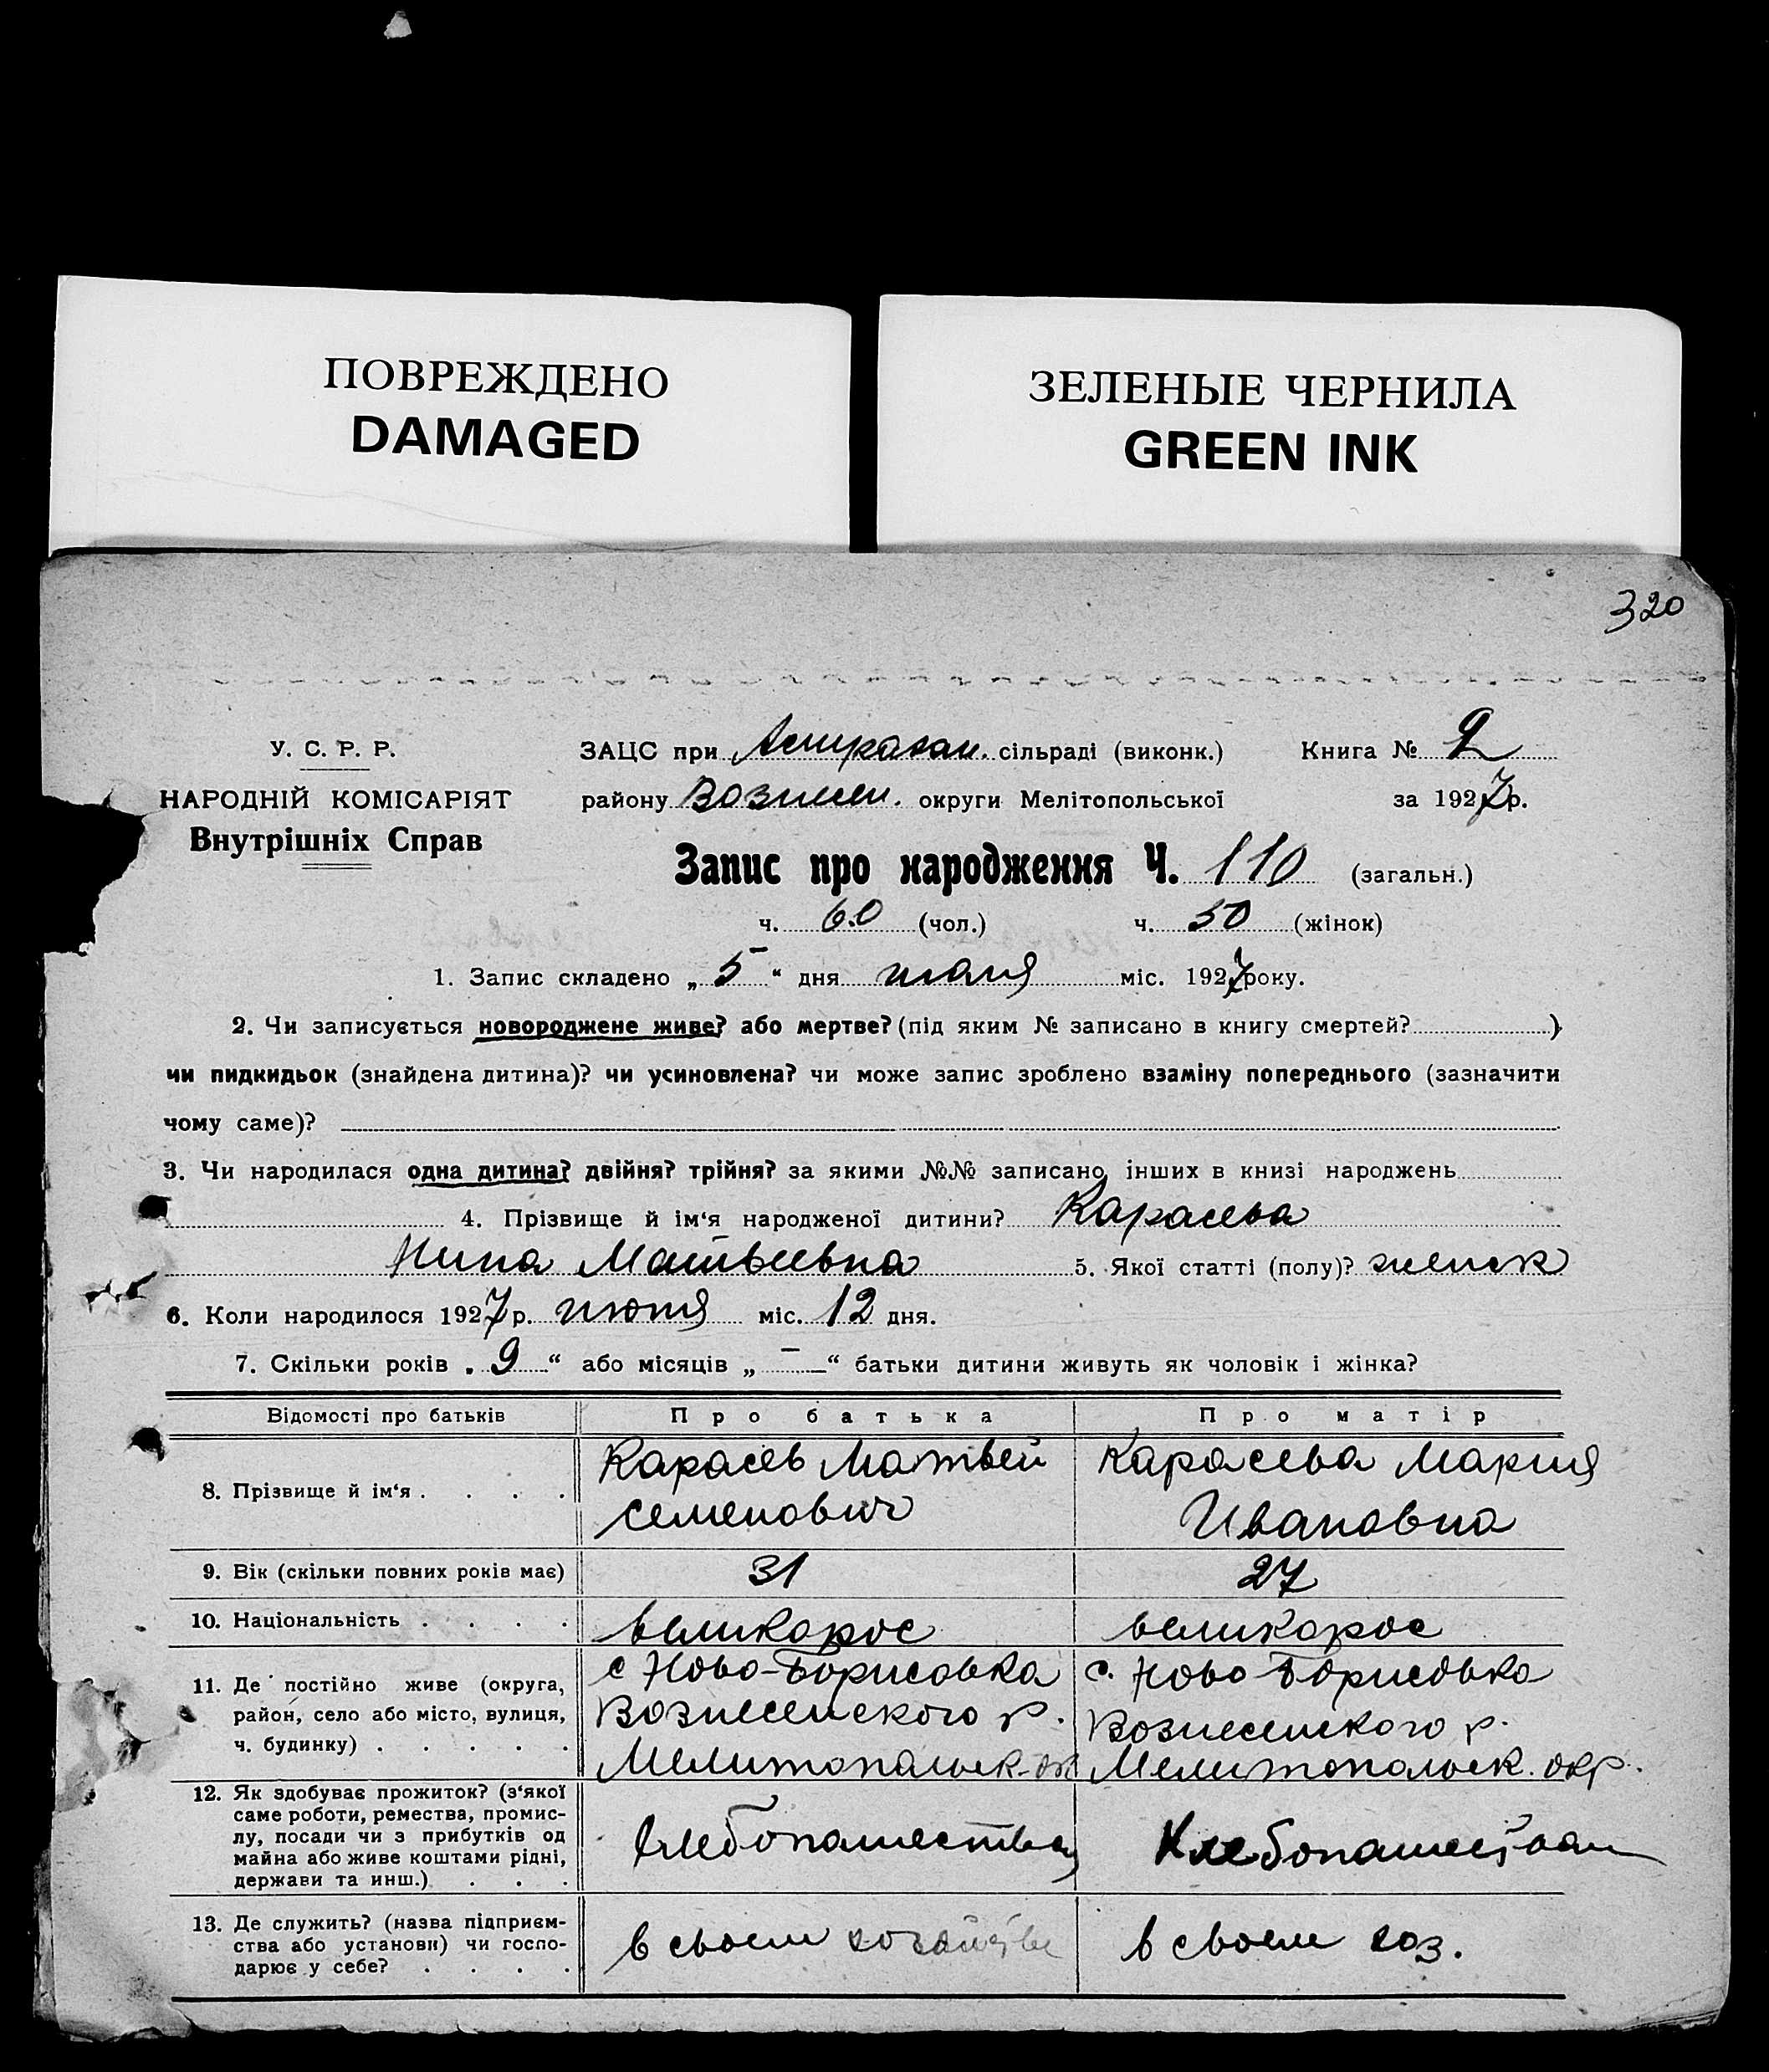 ПОВРЕЖДЕНО
DAMAGED
ЗЕЛЕНЫЕ ЧЕРНИЛА
GREEN INK
320
У. С. Р. Р.
НАРОДНІЙ КОМІСАРІЯТ
Внутрішніх Справ
ЗАЦС при Астрахан. сільраді (виконк.) Книга № 2
району Вознесен. округи Мелітопольської за 1927 р.
Запис про народження Ч. 110 (загальн.)
ч. 60 (чол.) ч. 50 (жінок)
1. Запис складено „ 5 “ дня июля міс. 1927 року.
2. Чи записується новороджене живе? або мертве? (під яким № записано в книгу смертей? )
чи пидкидьок (знайдена дитина)? чи усиновлена? чи може запис зроблено взаміну попереднього (зазначити
чому саме)?
3. Чи народилася одна дитина? двійня? трійня? за якими №№ записано інших в книзі народжень
4. Прізвище й ім‘я народженої дитини? Карасева
Нина Матвеевна 5. Якої статті (полу)? женск
6. Коли народилося 1927 р. июня міс. 12 дня.
7. Скільки років „ 9 “ або місяців „ — “ батьки дитини живуть як чоловік і жінка?
Відомості про батьків Про батька Про матір
8. Прізвище й ім‘я . . . . Карасев Матвей Семенович Карасева Мария Ивановна
9. Вік (скільки повних років має) 31 27
10. Національність . . . . великорос великорос
11. Де постійно живе (округа,
район, село або місто, вулиця,
ч. будинку) . . . . .
с Ново-Борисовка
Вознесенского р.
Мелитопольск. ок
с. Ново Борисовка
Вознесенского р.
Мелитопольск. окр.
12. Як здобуває прожиток? (з‘якої
саме роботи, ремества, промис-
лу, посади чи з прибутків од
майна або живе коштами рідні,
держави та инш.) . . .
хлебопашества
Хлебопашеством
13. Де служить? (назва підприєм-
ства або установи) чи госпо-
дарює у себе? . . . .
в своем хозяйстве
в своем хоз.